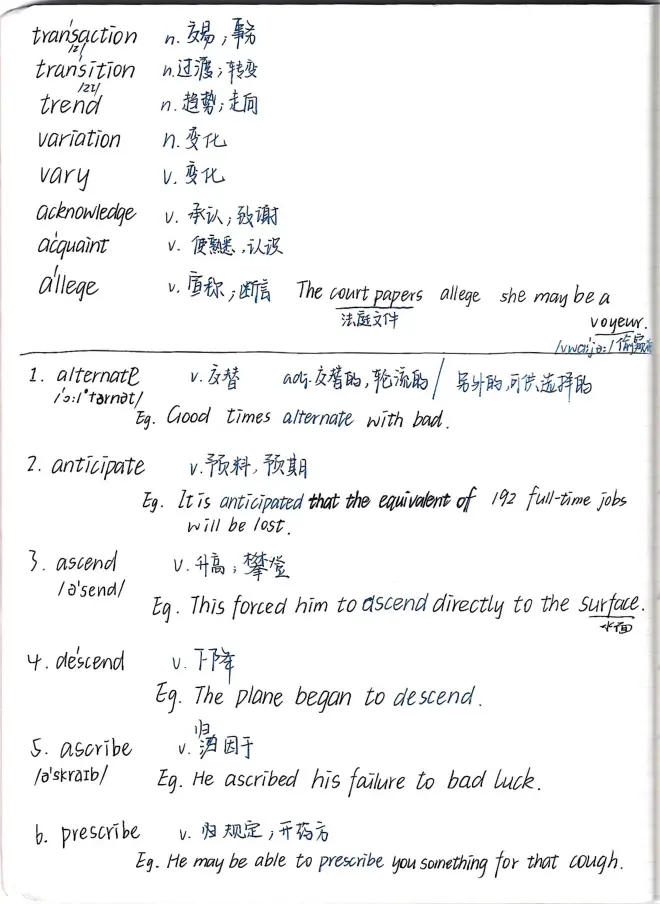 transaction n. 交易；事务
/z/
transition n.过渡；转变
/zɪ/
trend n. 趋势；走向
variation n. 变化
vary v. 变化
acknowledge v. 承认；致谢
acquaint v. 使熟悉，认识
allege v. 宣称；断言 The court papers allege she may be a
法庭文件 voyeur.
1. alternate v. 交替 adj.交替的，轮流的 / 另外的，可供选择的
Eg. Good times alternate with bad.
2. anticipate v.预料，预期
Eg. It is anticipated that the equivalent of 192 full-time jobs
will be lost.
3. ascend v. 升高；攀登
/ə'send/
Eg. This forced him to ascend directly to the surface.
水面
4. descend v. 下降
Eg. The plane began to descend.
归
5. ascribe v. 因于
/ə'skraɪb/ Eg. He ascribed his failure to bad luck.
6. prescribe v. 归 规定；开药方
Eg. He may be able to prescribe you something for that cough.